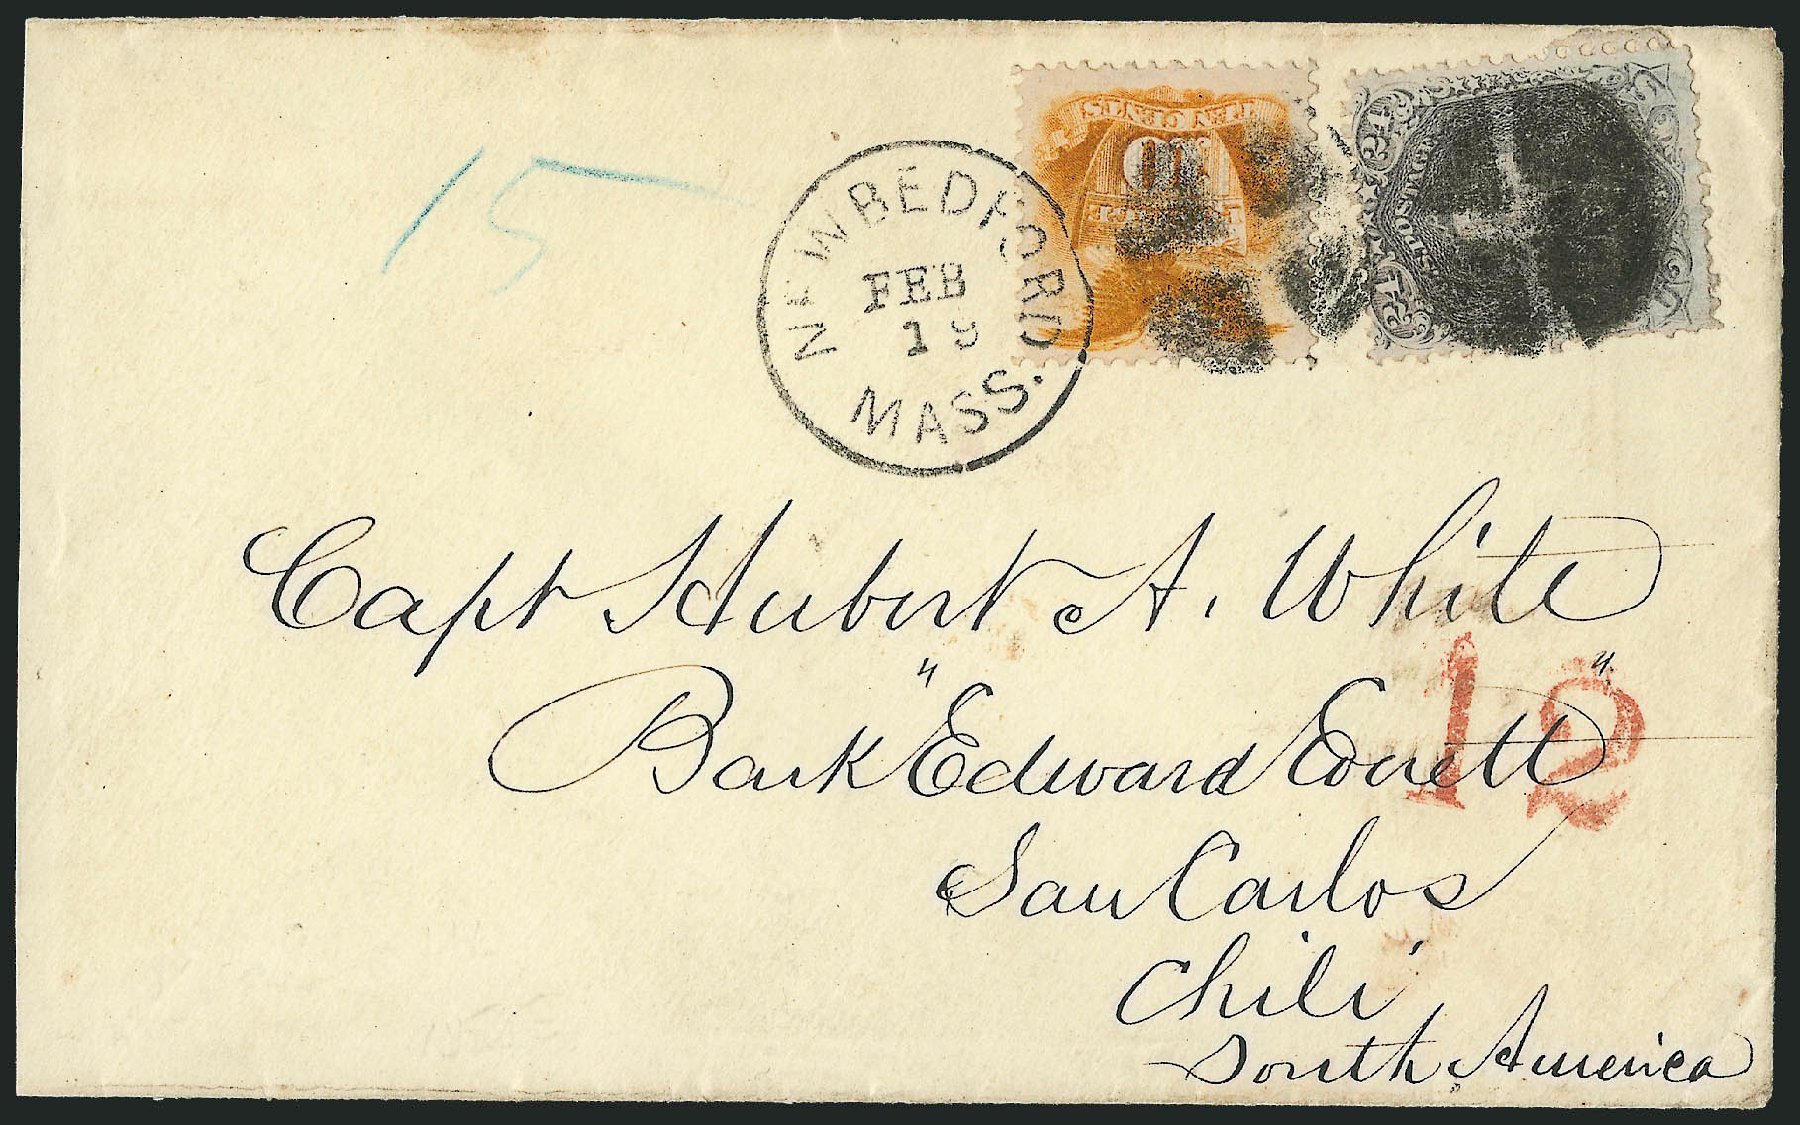 15
NEW BEDFORD
FEB
19
MASS.
TEN CENTS
10
U.S. POSTAGE
Capt Hubert A. White
Bark "Edward Everett"
12
San Carlos
Chili
South America